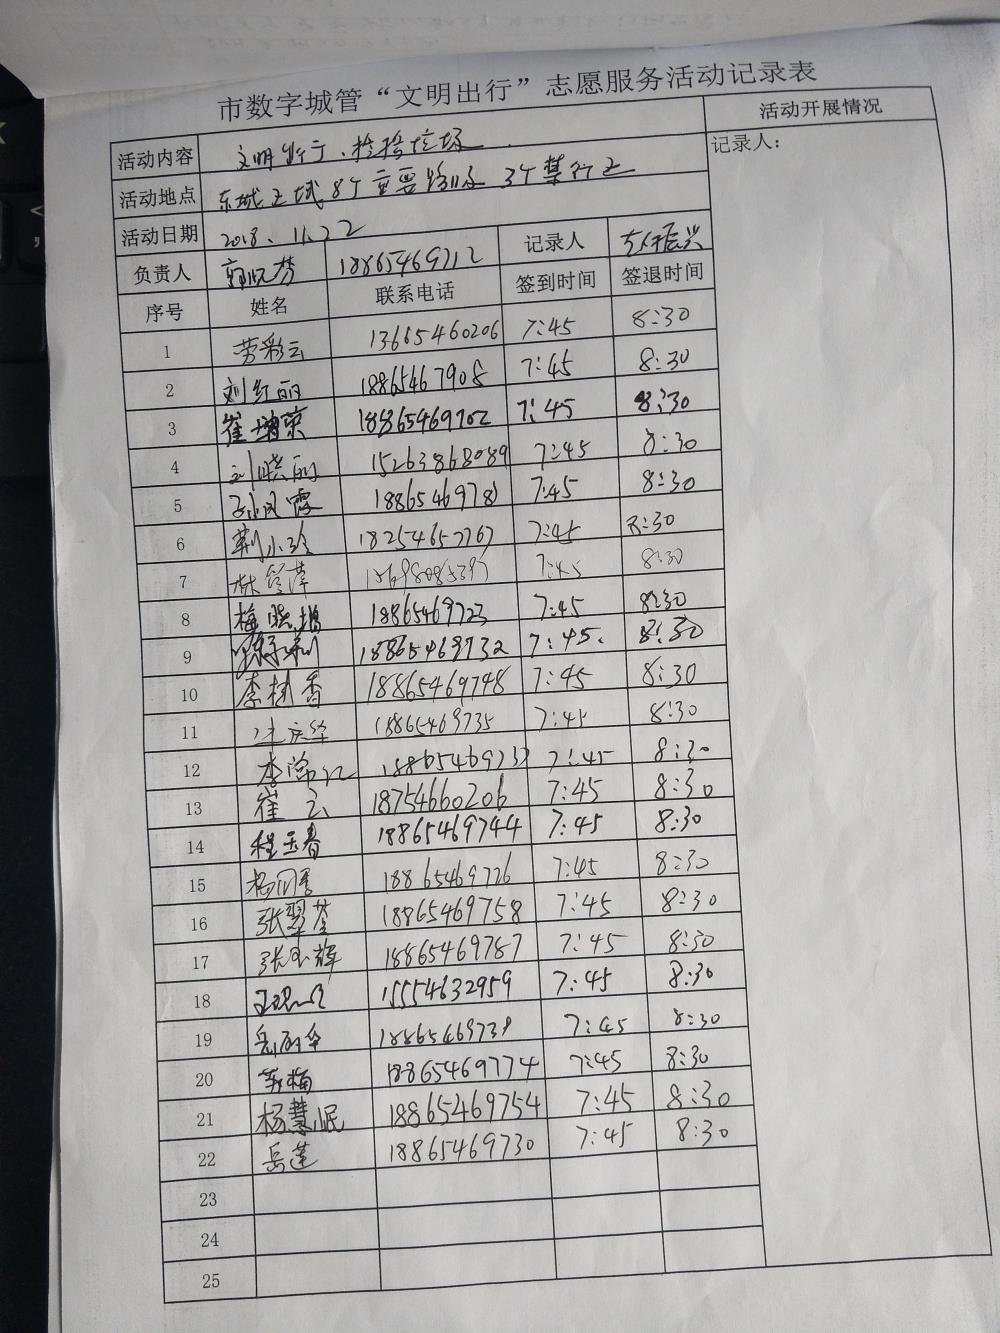 市数字城管“文明出行”志愿服务活动记录表
活动内容 文明出行、捡拾垃圾 活动开展情况
活动地点 东城区域8个重要路口及3个禁行区 记录人：
活动日期 2018.11.22
负责人 郭晓梦 18865469712 记录人 振兴
序号 姓名 联系电话 签到时间 签退时间
1 劳彩云 13665460206 7:45 8:30
2 刘红丽 18865467908 7:45 8:30
3 崔 18865469702 7:45 8:30
4 刘晓丽 15263868089 7:45 8:30
5 孙凤霞 1886546978 7:45 8:30
6 荆小玲 7:45 8:30
7 林 7:45 8:30
8 梅晓增 18865469723 7:45 8:30
9 18865469732 7:45. 8:30
10 李桂香 18865469748 7:45 8:30
11 18865469735 7:45 8:30
12 李常江 7:45 8:30
13 崔云 18754660206 7:45 8:30
14 程玉春 18865469744 7:45 8:30
15 18865469726 7:45 8:30
16 张翠荃 18865469758 7:45 8:30
17 张玉辉 18865469787 7:45 8:30
18 15554632959 7:45 8:30
19 7:45 8:30
20 18865469774 7:45 8:30
21 杨慧岷 18865469754 7:45 8:30
22 岳莲 18865469730 7:45 8:30
23
24
25